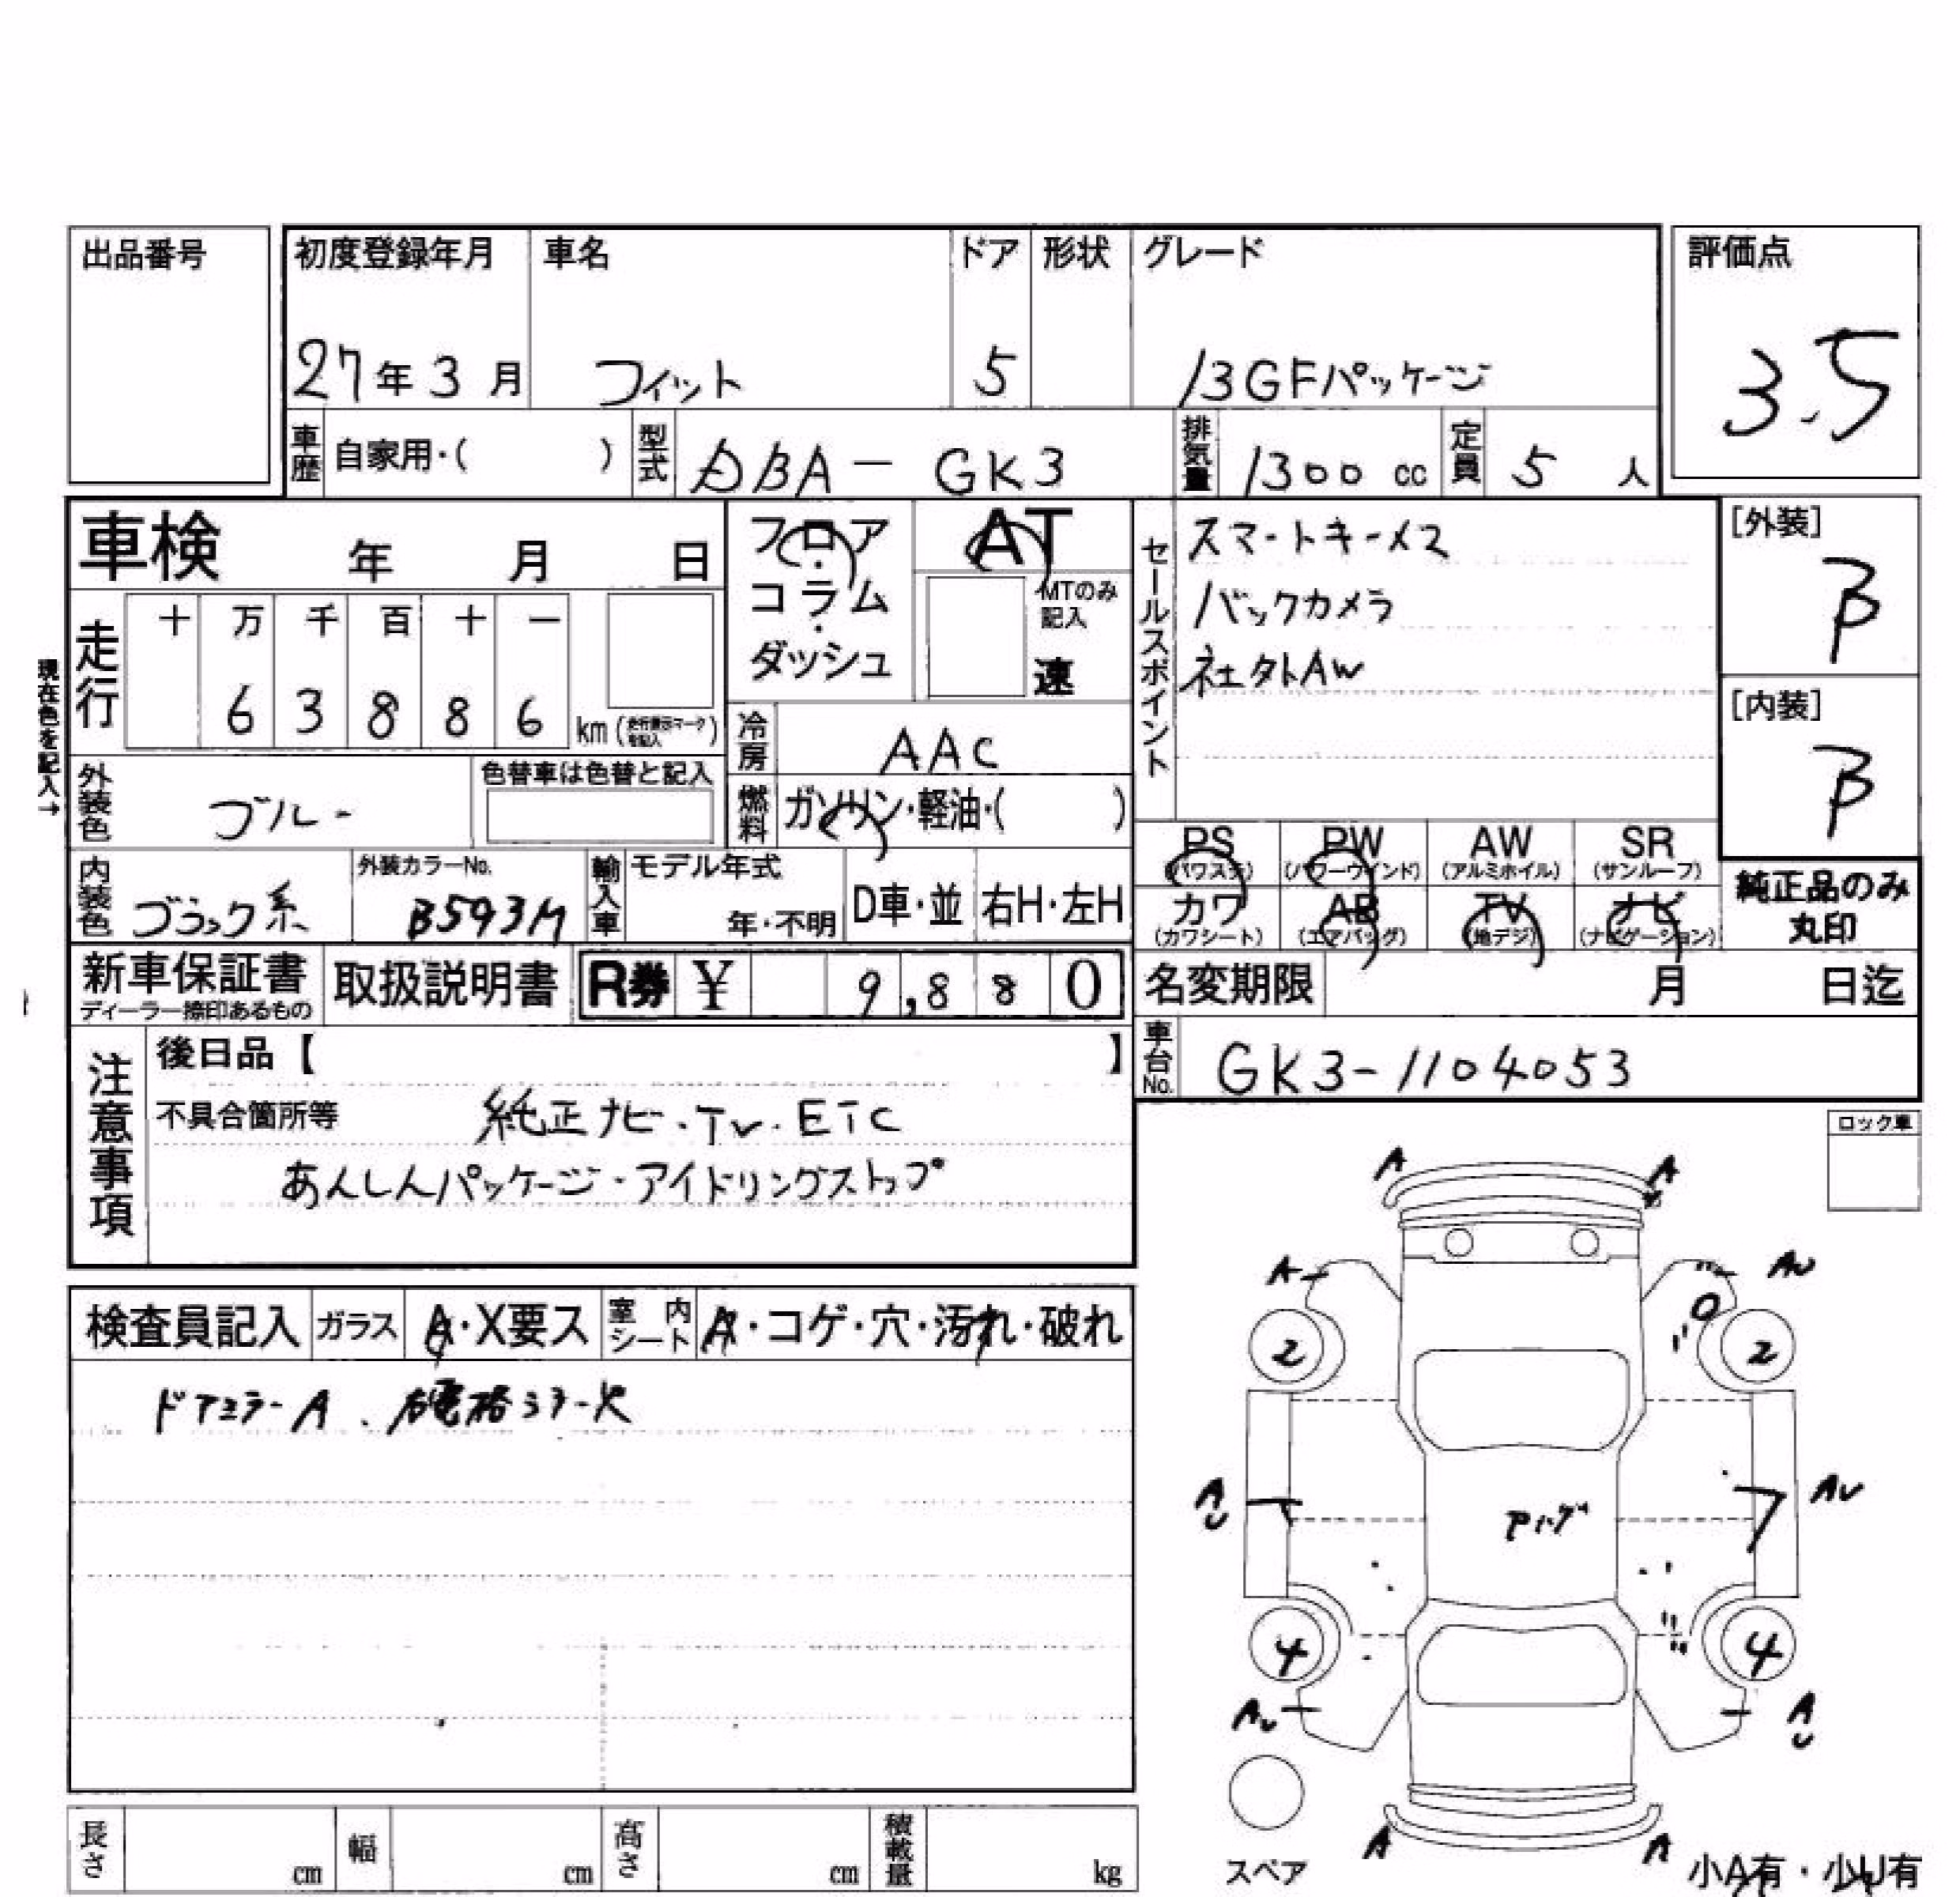 出品番号
初度登録年月 車名 ドア 形状 グレード 評価点
27年3月 フィット 5 13GFパッケージ 3.5
車歴 自家用・( ) 型式 DBA-GK3 排気量 1300 cc 定員 5 人
車検 年 月 日
フロア・コラム・ダッシュ
AT
MTのみ記入
速
現在色を記入→
走行 十 万 千 百 十 一
6 3 8 8 6 km
冷房 AAC
外装色 ブルー 色替車は色替と記入
燃料 ガソリン・軽油・( )
内装色 ブラック系 外装カラーNo. B593M
輸入車 モデル年式 年・不明 D車・並 右H・左H
セールスポイント
スマートキー
バックカメラ
社外AW
[外装]
B
[内装]
B
PS (パワステ) PW (パワーウインド) AW (アルミホイル) SR (サンルーフ)
カワ (カワシート) AB (エアバッグ) TV (地デジ) ナビ (ナビゲーション)
純正品のみ
丸印
新車保証書 取扱説明書 R券 ¥ 9,880
ディーラー捺印あるもの
名変期限 月 日迄
車台No. GK3-1104053
注意事項
後日品【 】
不具合箇所等 純正ナビ・TV・ETC
あんしんパッケージ・アイドリングストップ
ロック車
検査員記入 ガラス A・X要ス 室内シート A・コゲ・穴・汚れ・破れ
ドアミラーA、 電格ミラー
A A
A AU
2 2
AU AU
4 4
AU AU
A A
スペア
小A有・小U有
長さ cm 幅 cm 高さ cm 積載量 kg